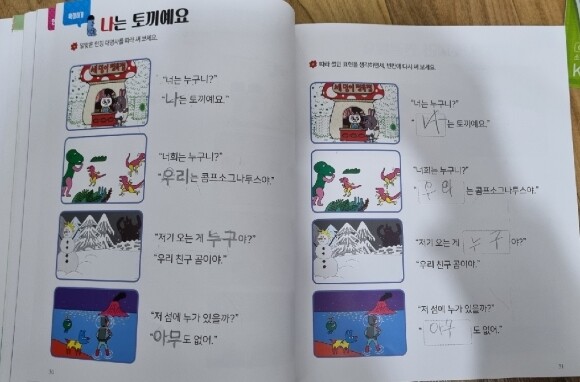 나는 토끼예요
알맞은 인칭 대명사를 따라 써 보세요.
"너는 누구니?"
"나는 토끼예요."
"너희는 누구니?"
"우리는 콤프소그나투스야."
"저기 오는 게 누구야?"
"우리 친구 곰이야."
"저 섬에 누가 있을까?"
"아무도 없어."
따라 썼던 표현을 생각하면서, 빈칸에 다시 써 보세요.
"너는 누구니?"
"나는 토끼예요."
"너희는 누구니?"
"우리는 콤프소그나투스야."
"저기 오는 게 누구야?"
"우리 친구 곰이야."
"저 섬에 누가 있을까?"
"아무도 없어."